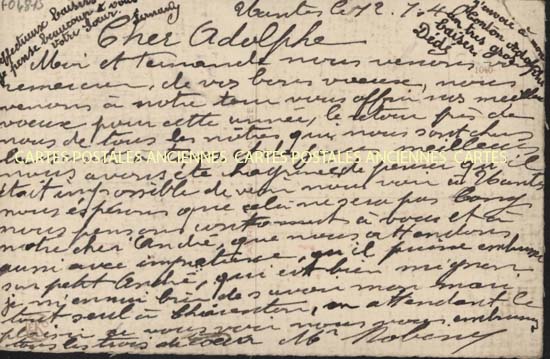 Cher Adolphe
Moi et Fernande nous venons
remercier, de vos bons voeux, nous
venons à notre tour vous offrir nos meilleurs
voeux pour cette année, le retour près de
nous de tous les nôtres qui nous sont chers
CARTES POSTALES ANCIENNES CARTES POSTALES ANCIENNES CARTES
nous avons été chagriné de penser qu'il
était impossible de venir nous voir à
nous espérons que cela ne sera pas long
nous pensons à vous et à
notre cher André, que nous attendons
aussi avec impatience, qu'il puisse embrasser
son petit André, qui est bien mignon
je m'ennui bien de savoir mon mari
tout seul à Charenton, en attendant le
plaisir de vous voir nous vous embrassons
tous les trois de coeur
affectueux baisers
je pense beaucoup à vous
votre soeur Fernande
J'envoie à mon
Tonton Adolphe
un très gros
baiser
Dédé